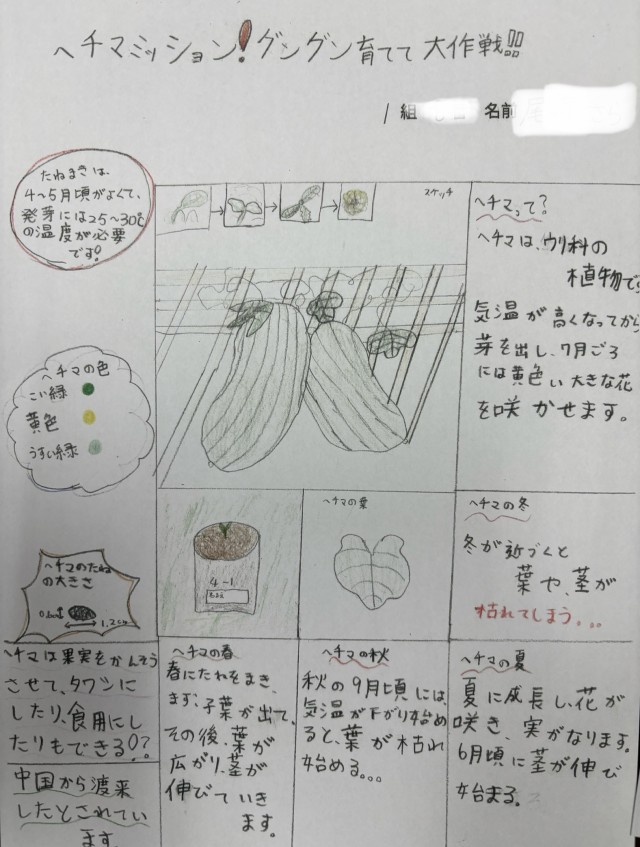 ヘチマミッション!グングン育てて大作戦!!
1組 名前
たねまきは、
4~5月頃がよくて、
発芽には25~30℃
の温度が必要
です!
スケッチ
ヘチマって?
ヘチマは、ウリ科の
植物で
気温が高くなってから
芽を出し、7月ごろ
には黄色い大きな花
を咲かせます。
ヘチマの色
こい緑
黄色
うすい緑
ヘチマのたね
の大きさ
1.2cm
4-1
ヘチマの葉
ヘチマの冬
冬が近づくと
葉や、茎が
枯れてしまう...
ヘチマは果実をかんそう
させて、タワシに
したり、食用にし
たりもできる!?
中国から渡来
したとされてい
ます。
ヘチマの春
春にたねをまき、
まず、子葉が出て、
その後、葉が
広がり、茎が
伸びていき
ます。
ヘチマの秋
秋の9月頃には、
気温が下がり始め
ると、葉が枯れ
始める...
ヘチマの夏
夏に成長し、花が
咲き、実がなります。
6月頃に茎が伸び
始まる。